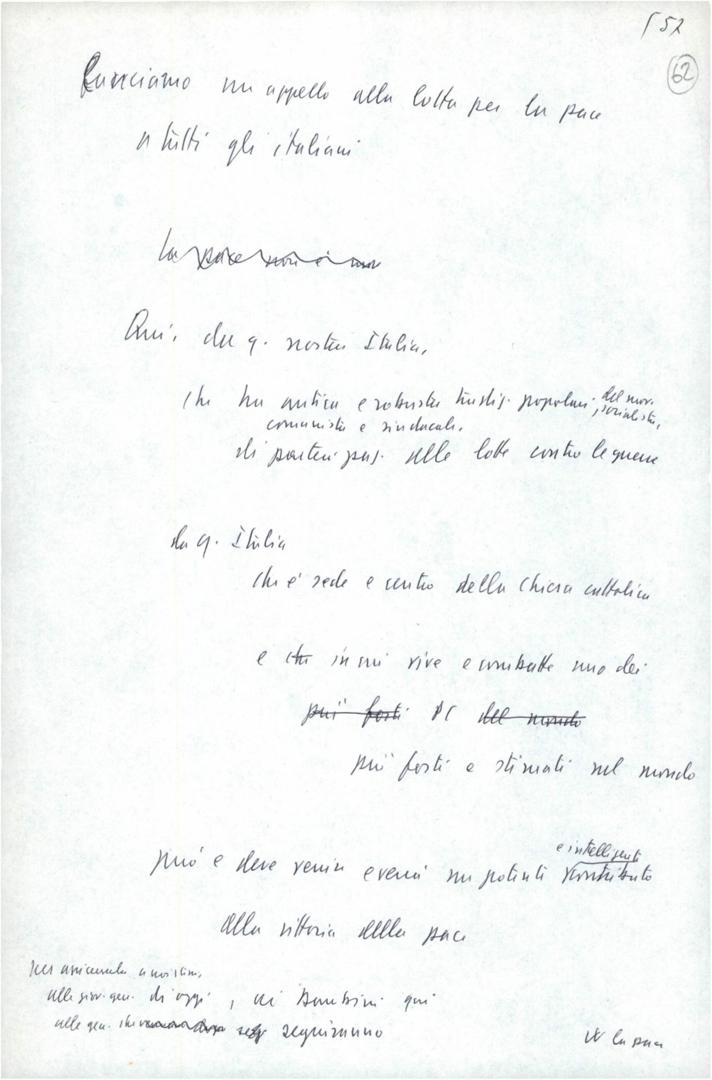 152
62
Lanciamo un appello alla lotta per la pace
a tutti gli italiani
La pace non è
Qui, da q. nostra Italia,
che ha antica e robusta tradiz. popolari, del mov. socialista,
comunista e sindacale,
di partecipaz. alle lotte contro le guerre
da q. Italia
che è sede e centro della Chiesa cattolica
e che in cui vive e combatte uno dei
più forti PC del mondo
più forti e stimati nel mondo
può e deve venire e verrà un potente e intelligente contributo
alla vittoria della pace
per assicurarla a noi
alle giov. gen. di oggi, ai bambini qui
alle gen. che seguiranno
W la pace